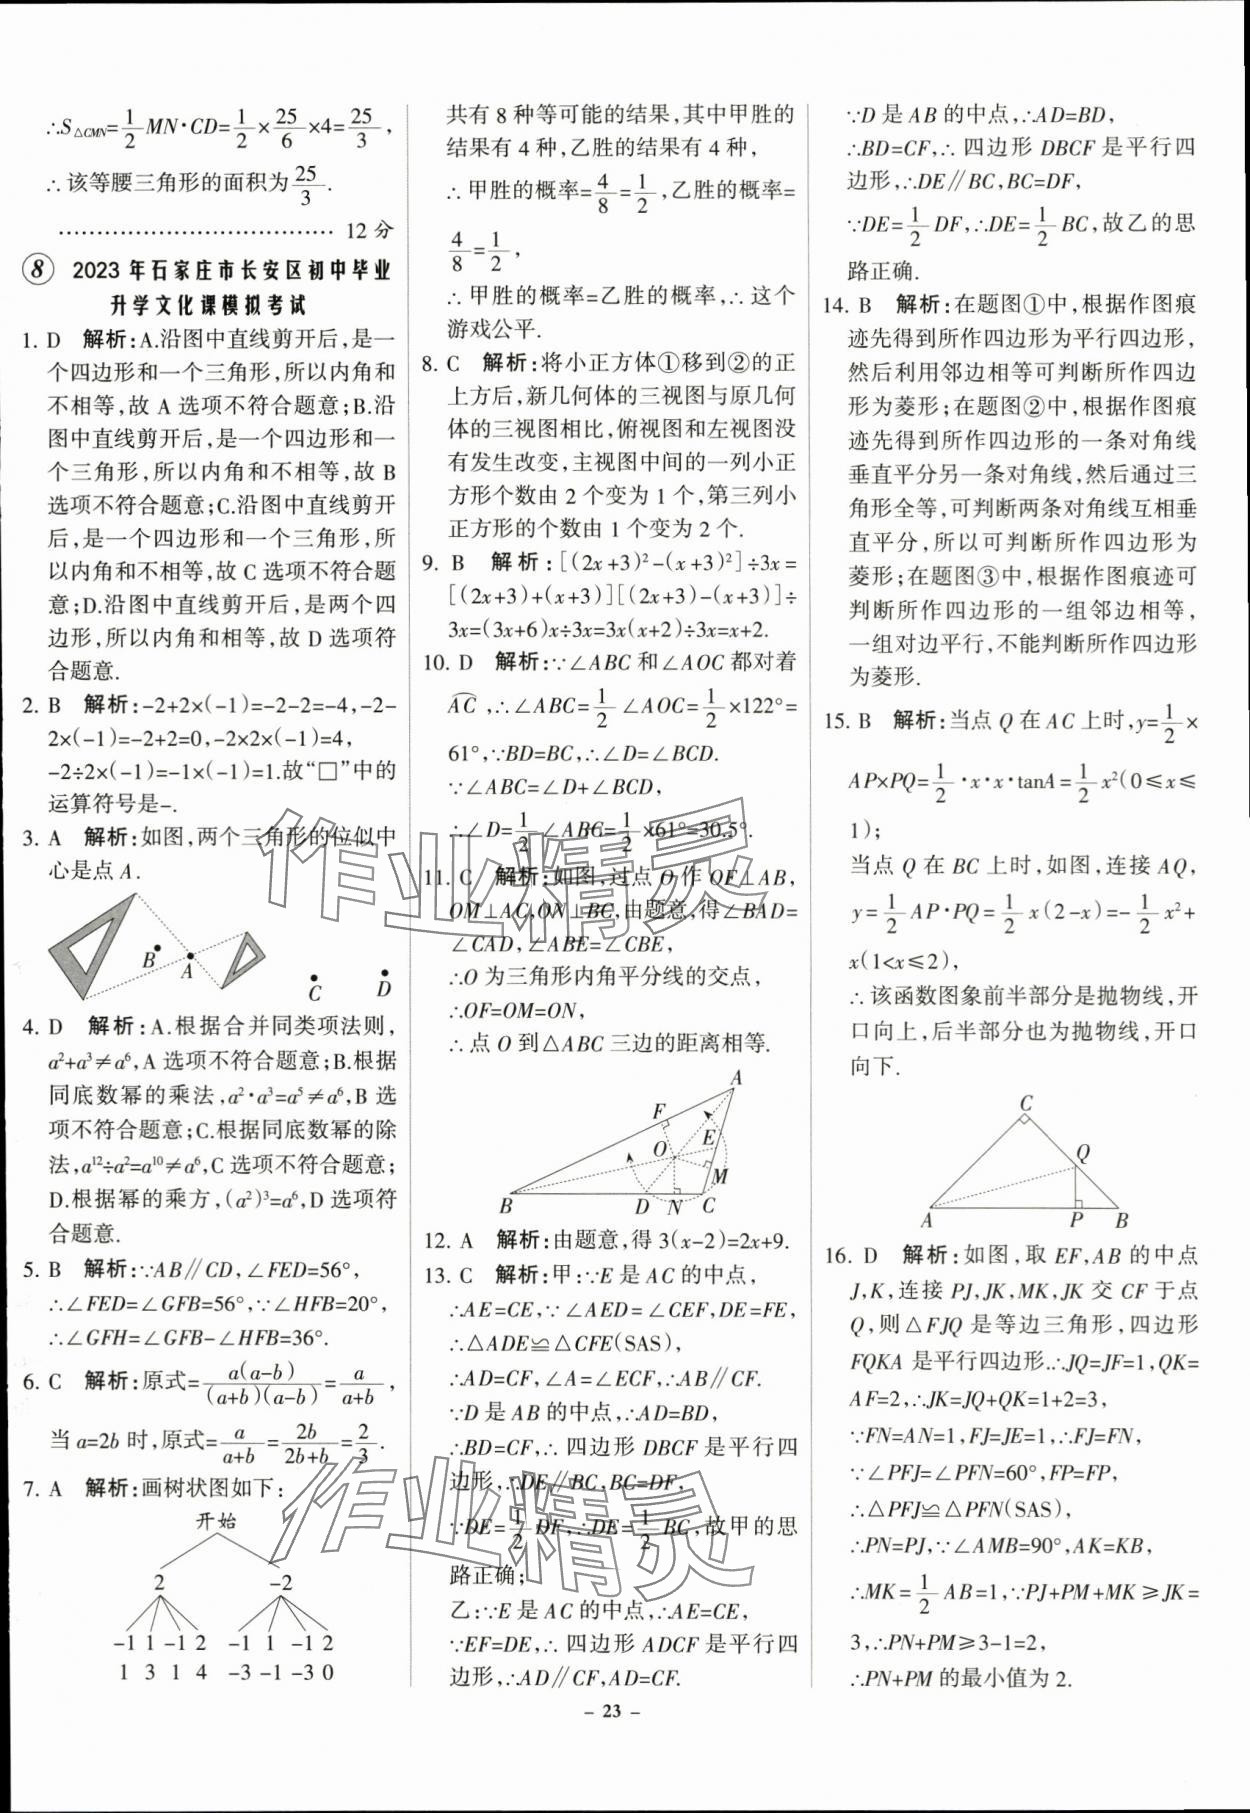 ∴S△CMN=1/2 MN·CD=1/2×25/6×4=25/3,
∴该等腰三角形的面积为25/3.
……………………………… 12分
⑧ 2023年石家庄市长安区初中毕业
升学文化课模拟考试
1. D 解析:A.沿图中直线剪开后,是一
个四边形和一个三角形,所以内角和
不相等,故A选项不符合题意;B.沿
图中直线剪开后,是一个四边形和一
个三角形,所以内角和不相等,故B
选项不符合题意;C.沿图中直线剪开
后,是一个四边形和一个三角形,所
以内角和不相等,故C选项不符合题
意;D.沿图中直线剪开后,是两个四
边形,所以内角和相等,故D选项符
合题意.
2. B 解析:-2+2×(-1)=-2-2=-4,-2-
2×(-1)=-2+2=0,-2×2×(-1)=4,
-2÷2×(-1)=-1×(-1)=1.故“□”中的
运算符号是-.
3. A 解析:如图,两个三角形的位似中
心是点A.
B A C D
4. D 解析:A.根据合并同类项法则,
a²+a³≠a⁶,A选项不符合题意;B.根据
同底数幂的乘法,a²·a³=a⁵≠a⁶,B选
项不符合题意;C.根据同底数幂的除
法,a¹²÷a²=a¹⁰≠a⁶,C选项不符合题意;
D.根据幂的乘方,(a²)³=a⁶,D选项符
合题意.
5. B 解析:∵AB∥CD,∠FED=56°,
∴∠FED=∠GFB=56°,∵∠HFB=20°,
∴∠GFH=∠GFB-∠HFB=36°.
6. C 解析:原式=a(a-b)/(a+b)(a-b)=a/(a+b),
当a=2b时,原式=a/(a+b)=2b/(2b+b)=2/3.
7. A 解析:画树状图如下:
开始
2 -2
-1 1 -1 2 -1 1 -1 2
1 3 1 4 -3 -1 -3 0
共有8种等可能的结果,其中甲胜的
结果有4种,乙胜的结果有4种,
∴甲胜的概率=4/8=1/2,乙胜的概率=
4/8=1/2,
∴甲胜的概率=乙胜的概率,∴这个
游戏公平.
8. C 解析:将小正方体①移到②的正
上方后,新几何体的三视图与原几何
体的三视图相比,俯视图和左视图没
有发生改变,主视图中间的一列小正
方形个数由2个变为1个,第三列小
正方形的个数由1个变为2个.
9. B 解析:[(2x+3)²-(x+3)²]÷3x=
[(2x+3)+(x+3)][(2x+3)-(x+3)]÷
3x=(3x+6)x÷3x=3x(x+2)÷3x=x+2.
10. D 解析:∵∠ABC和∠AOC都对着
AC,∴∠ABC=1/2∠AOC=1/2×122°=
61°,∵BD=BC,∴∠D=∠BCD.
∵∠ABC=∠D+∠BCD,
∴∠D=1/2∠ABC=1/2×61°=30.5°.
11. C 解析:如图,过点O作OF⊥AB,
OM⊥AC,ON⊥BC,由题意,得∠BAD=
∠CAD,∠ABE=∠CBE,
∴O为三角形内角平分线的交点,
∴OF=OM=ON,
∴点O到△ABC三边的距离相等.
A F O E M B D N C
12. A 解析:由题意,得3(x-2)=2x+9.
13. C 解析:甲:∵E是AC的中点,
∴AE=CE,∵∠AED=∠CEF,DE=FE,
∴△ADE≌△CFE(SAS),
∴AD=CF,∠A=∠ECF,∴AB∥CF.
∵D是AB的中点,∴AD=BD,
∴BD=CF,∴四边形DBCF是平行四
边形,∴DE∥BC,BC=DF,
∵DE=1/2 DF,∴DE=1/2 BC,故甲的思
路正确;
乙:∵E是AC的中点,∴AE=CE,
∵EF=DE,∴四边形ADCF是平行四
边形,∴AD∥CF,AD=CF.
∵D是AB的中点,∴AD=BD,
∴BD=CF,∴四边形DBCF是平行四
边形,∴DE∥BC,BC=DF,
∵DE=1/2 DF,∴DE=1/2 BC,故乙的思
路正确.
14. B 解析:在题图①中,根据作图痕
迹先得到所作四边形为平行四边形,
然后利用邻边相等可判断所作四边
形为菱形;在题图②中,根据作图痕
迹先得到所作四边形的一条对角线
垂直平分另一条对角线,然后通过三
角形全等,可判断两条对角线互相垂
直平分,所以可判断所作四边形为
菱形;在题图③中,根据作图痕迹可
判断所作四边形的一组邻边相等,
一组对边平行,不能判断所作四边形
为菱形.
15. B 解析:当点Q在AC上时,y=1/2×
AP×PQ=1/2·x·x·tanA=1/2 x²(0≤x≤
1);
当点Q在BC上时,如图,连接AQ,
y=1/2 AP·PQ=1/2 x(2-x)=-1/2 x²+
x(1<x≤2),
∴该函数图象前半部分是抛物线,开
口向上,后半部分也为抛物线,开口
向下.
C Q A P B
16. D 解析:如图,取EF,AB的中点
J,K,连接PJ,JK,MK,JK交CF于点
Q,则△FJQ是等边三角形,四边形
FQKA是平行四边形.∴JQ=JF=1,QK=
AF=2,∴JK=JQ+QK=1+2=3,
∵FN=AN=1,FJ=JE=1,∴FJ=FN,
∵∠PFJ=∠PFN=60°,FP=FP,
∴△PFJ≌△PFN(SAS),
∴PN=PJ,∵∠AMB=90°,AK=KB,
∴MK=1/2 AB=1,∵PJ+PM+MK≥JK=
3,∴PN+PM≥3-1=2,
∴PN+PM的最小值为2.
- 23 -
作业精灵
作业精灵